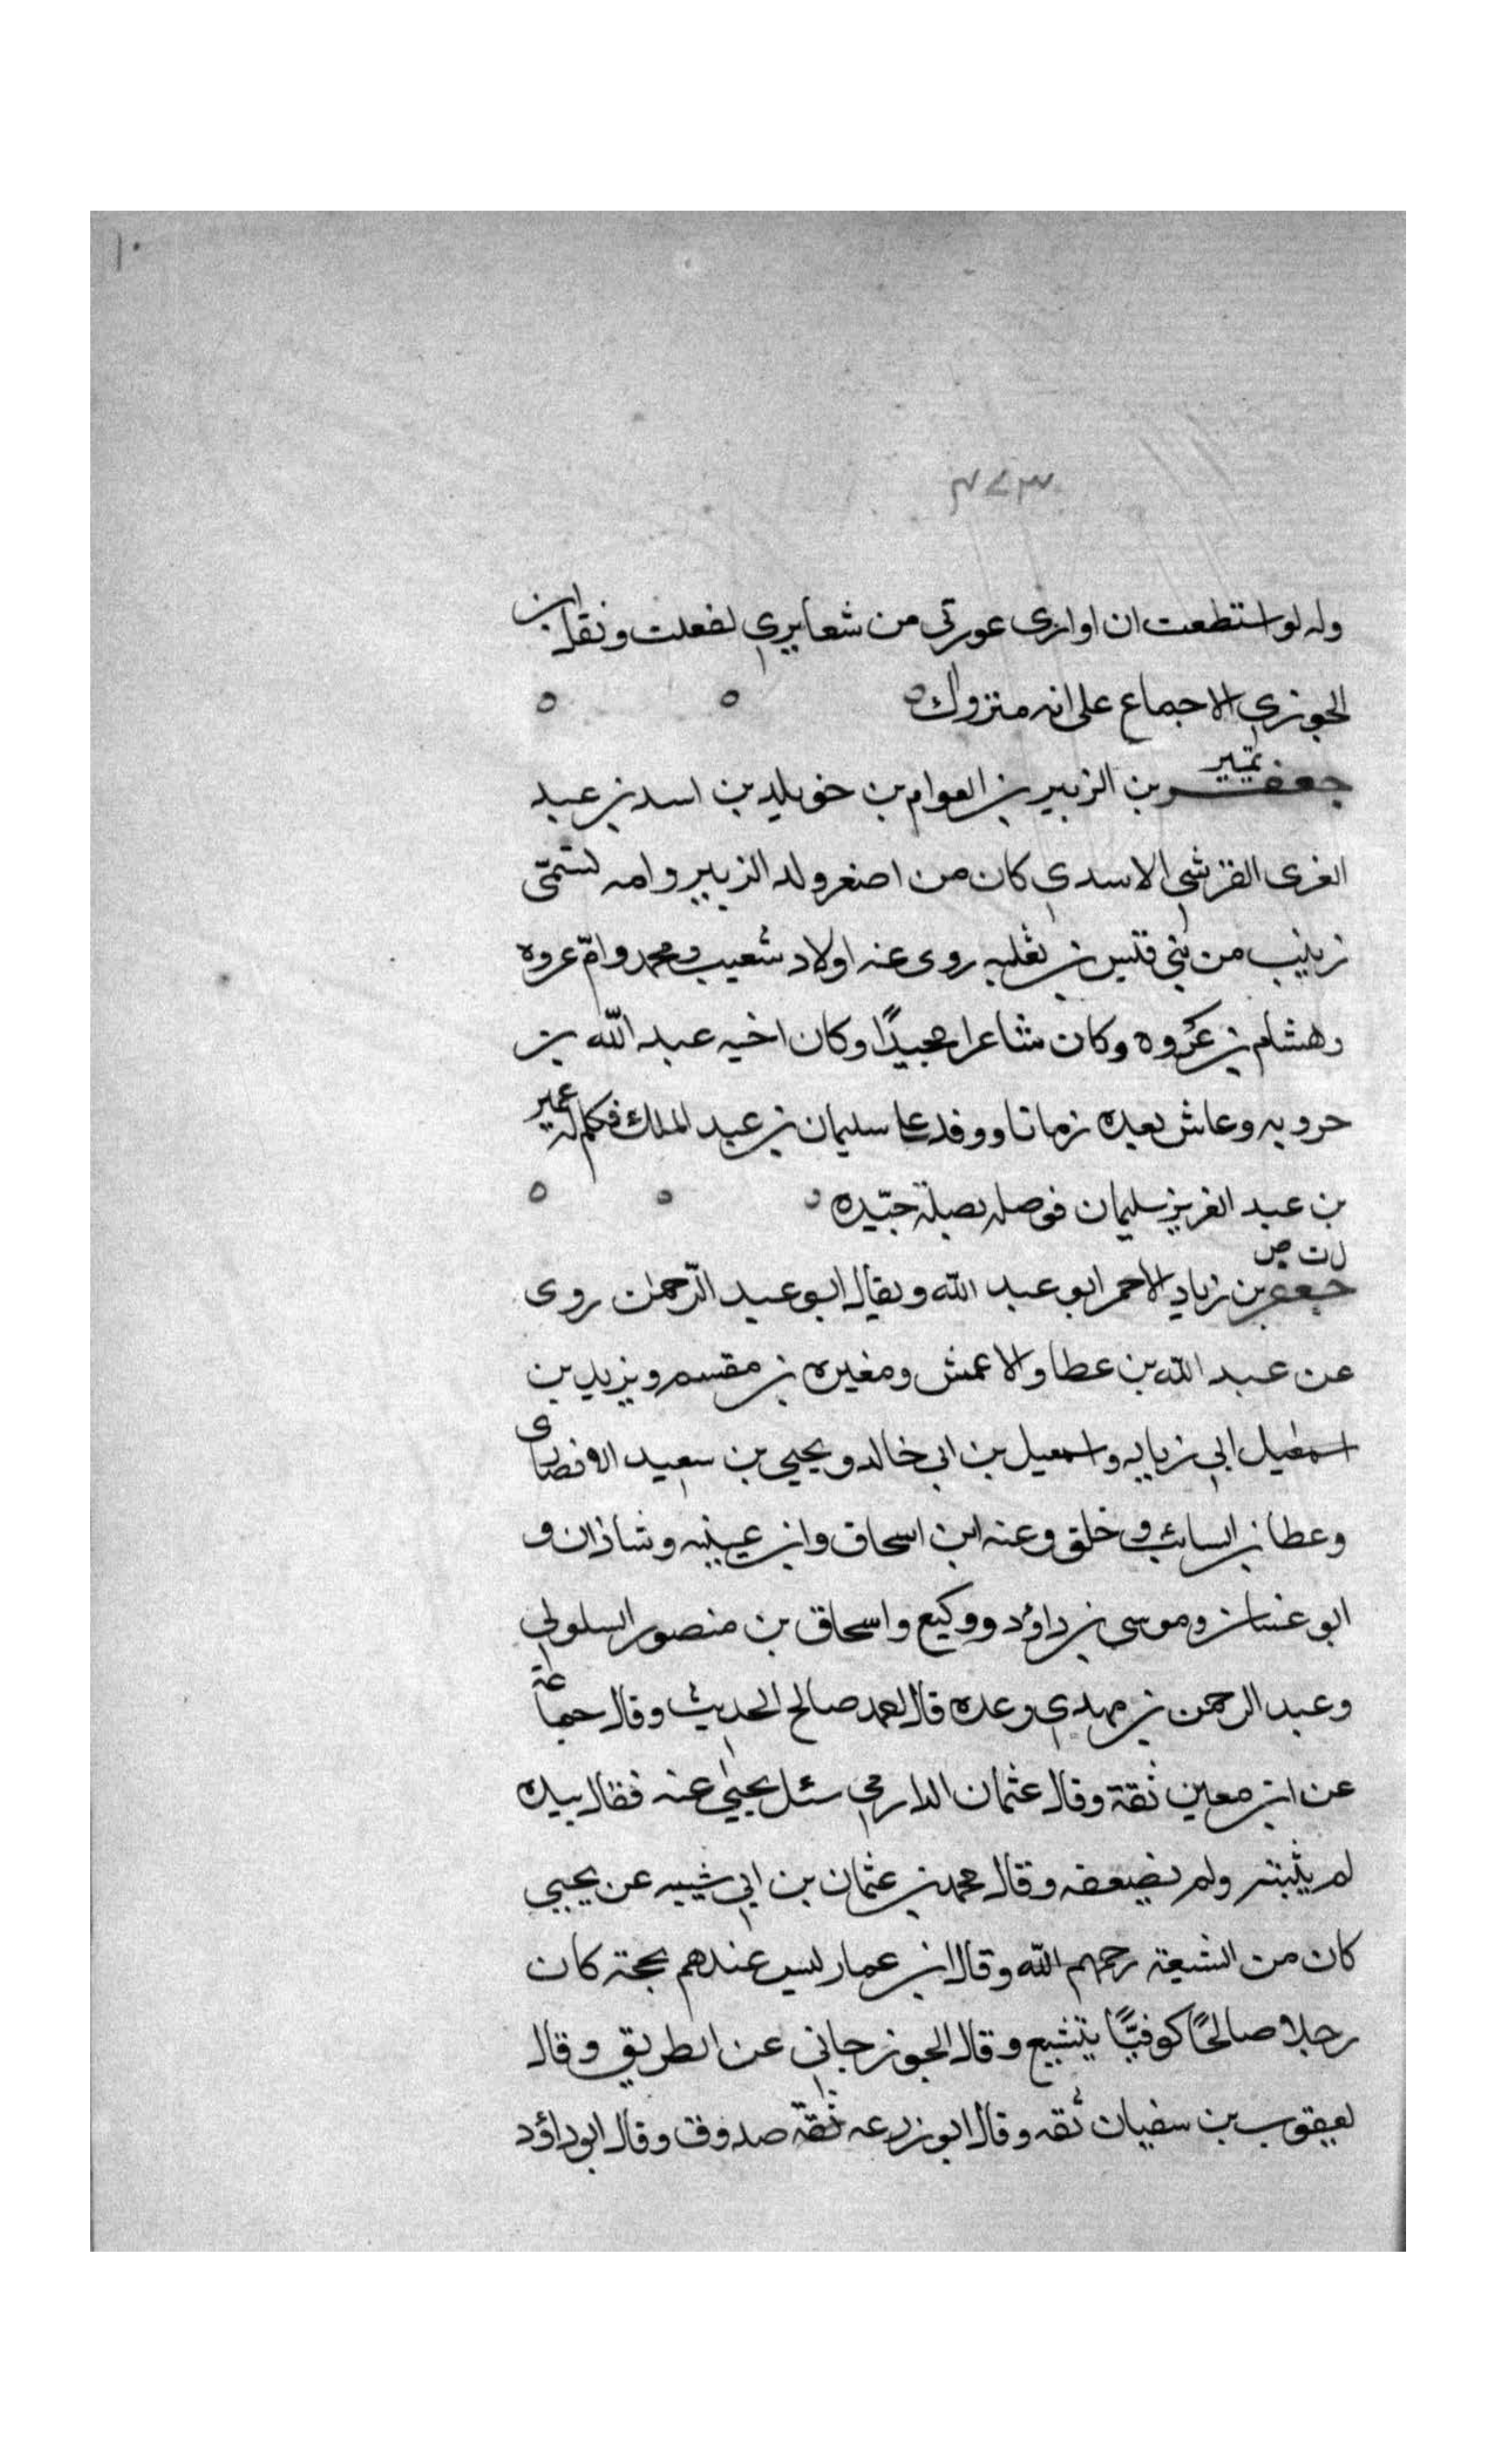 ١٠
٣٧٣
وله لو استطعت ان اوارى عورتى من شعايري لفعلت ونقل ابن
الجوزي الاجماع على انه متروك ه ه ه
تمييز
جعفر بن الزبير بن العوام بن خويلد بن اسد بن عبد
العزى القرشي الاسدي كان من اصغر ولد الزبير وامه تسمى
زينب من بني قيس بن ثعلبه روى عنه اولاد شعيب ومحمد وامّ عروه
وهشام بن عُروه وكان شاعرا مجيدًا وكان اخيه عبد الله بن
حروبه وعاش بعده زمانا ووفد على سليمان بن عبد الملك فكلم له عمير
بن عبد العزيز سليمان فوصله بصلة جيّده ه ه ه
ل ت ص
جعفر بن زياد الاحمر ابو عبد الله ويقال ابو عبد الرّحمٰن روى
عن عبد الله بن عطا والاعمش ومغيره بن مقسم ويزيد بن
اسمعيل ابي زياد واسمعيل بن ابي خالد ويحيي بن سعيد الانصارى
وعطا بن السائب وخلق وعنه ابن اسحاق وابن عيينه وشاذان و
ابو غسان وموسى بن داؤد ووكيع واسحاق بن منصور السلولي
وعبد الرحمن بن مهدي وعده قال احمد صالح الحديث وقال جماعة
عن ابن معين ثقة وقال عثمان الدارمي سئل يحيٰي عنه فقال بيده
لم يثبته ولم يضعفه وقال محمد بن عثمان بن ابي شيبه عن يحيي
كان من الشيعة رحمهم الله وقال ابن عمار ليس عندهم بحجة كان
رجلا صالحًا كوفيًّا يتشيع وقال الجوزجاني عن الطريق وقال
يعقوب بن سفيان ثقه وقال ابو زرعه ثقة صدوق وقال ابو داؤد